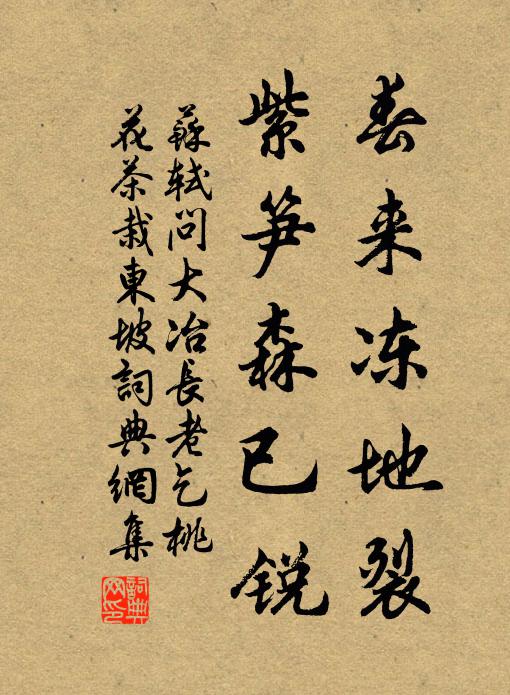 春来冻地裂
紫笋森已锐
蘇軾问大冶長老乞桃
花茶栽東坡詞典網集
詞典网印